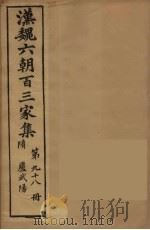 漢魏六朝百三家集
隋 盧武陽
第九十八冊